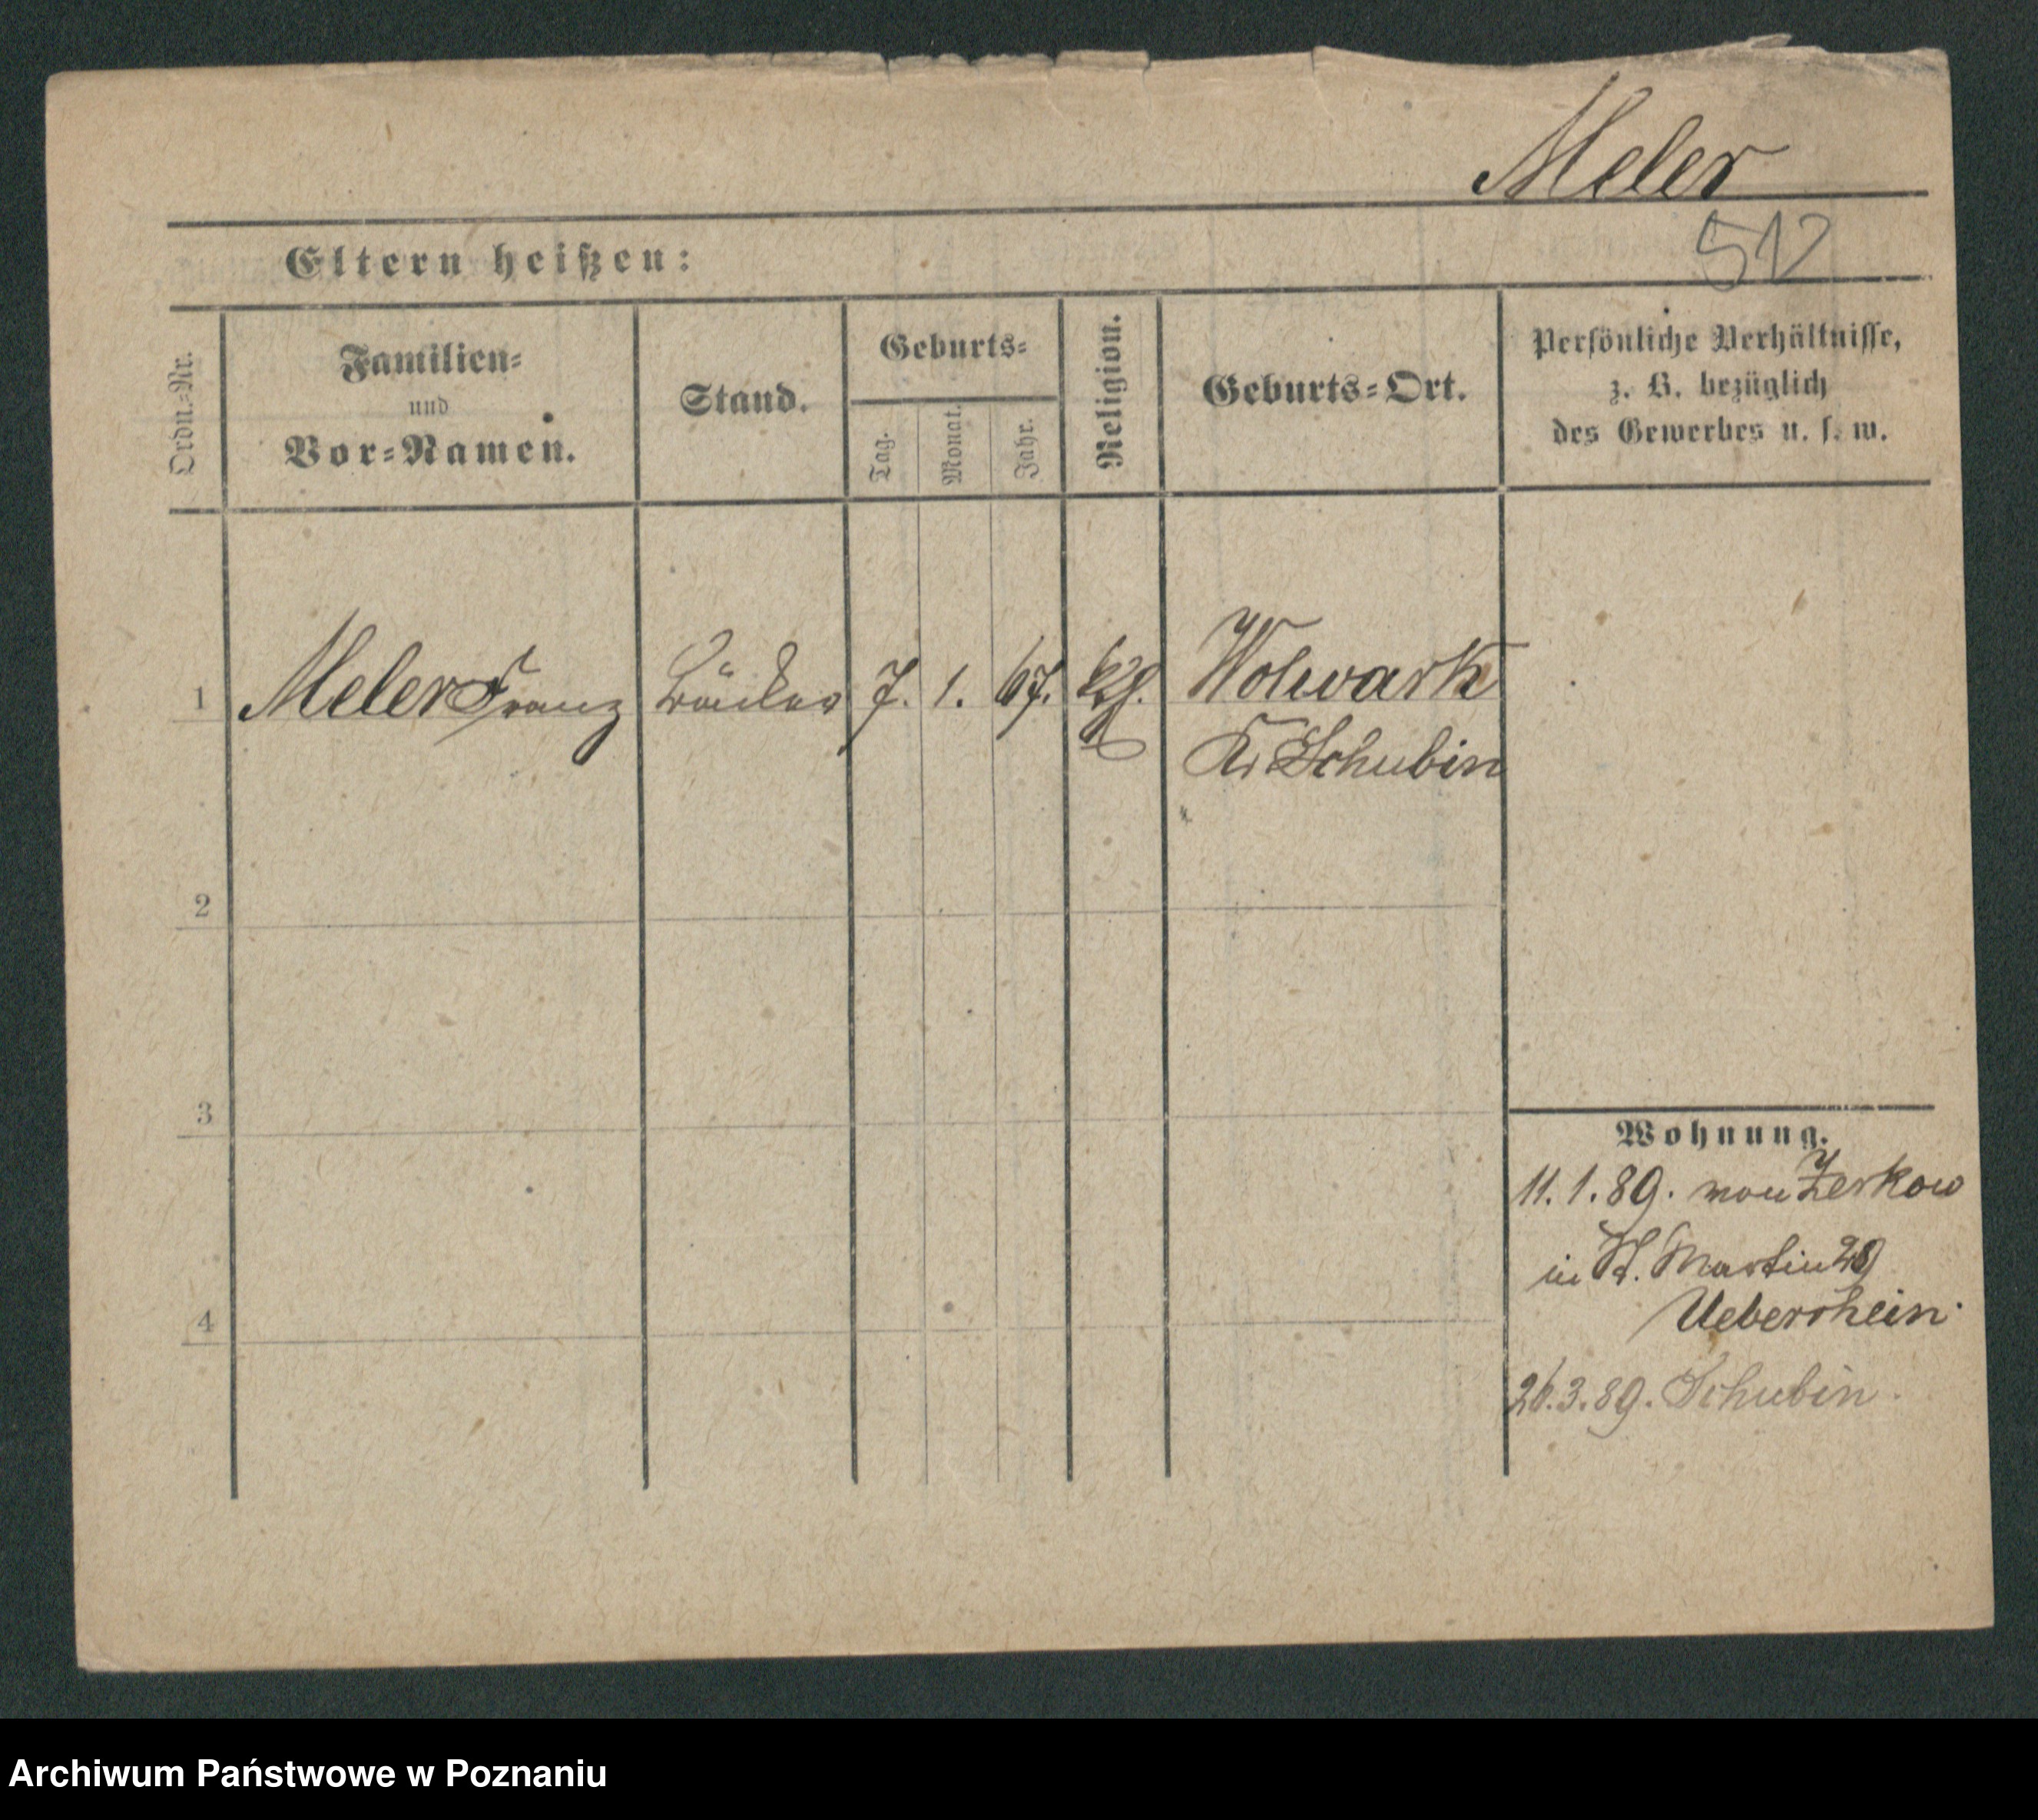 Meler
512
Eltern heißen:
Ordn.-Nr.
Familien-
und
Vor-Namen.
Stand.
Geburts-
Tag.
Monat.
Jahr.
Religion.
Geburts-Ort.
Persönliche Verhältnisse,
z. B. bezüglich
des Gewerbes u. s. w.
1 Meler Franz Bäcker 7. 1. 67. kth. Wolwark
Kr. Schubin
2
3
4
Wohnung.
11. 1. 89. von Zerkow
in St. Martin 29
Ueberrhein.
26. 3. 89. Schubin.
Archiwum Państwowe w Poznaniu